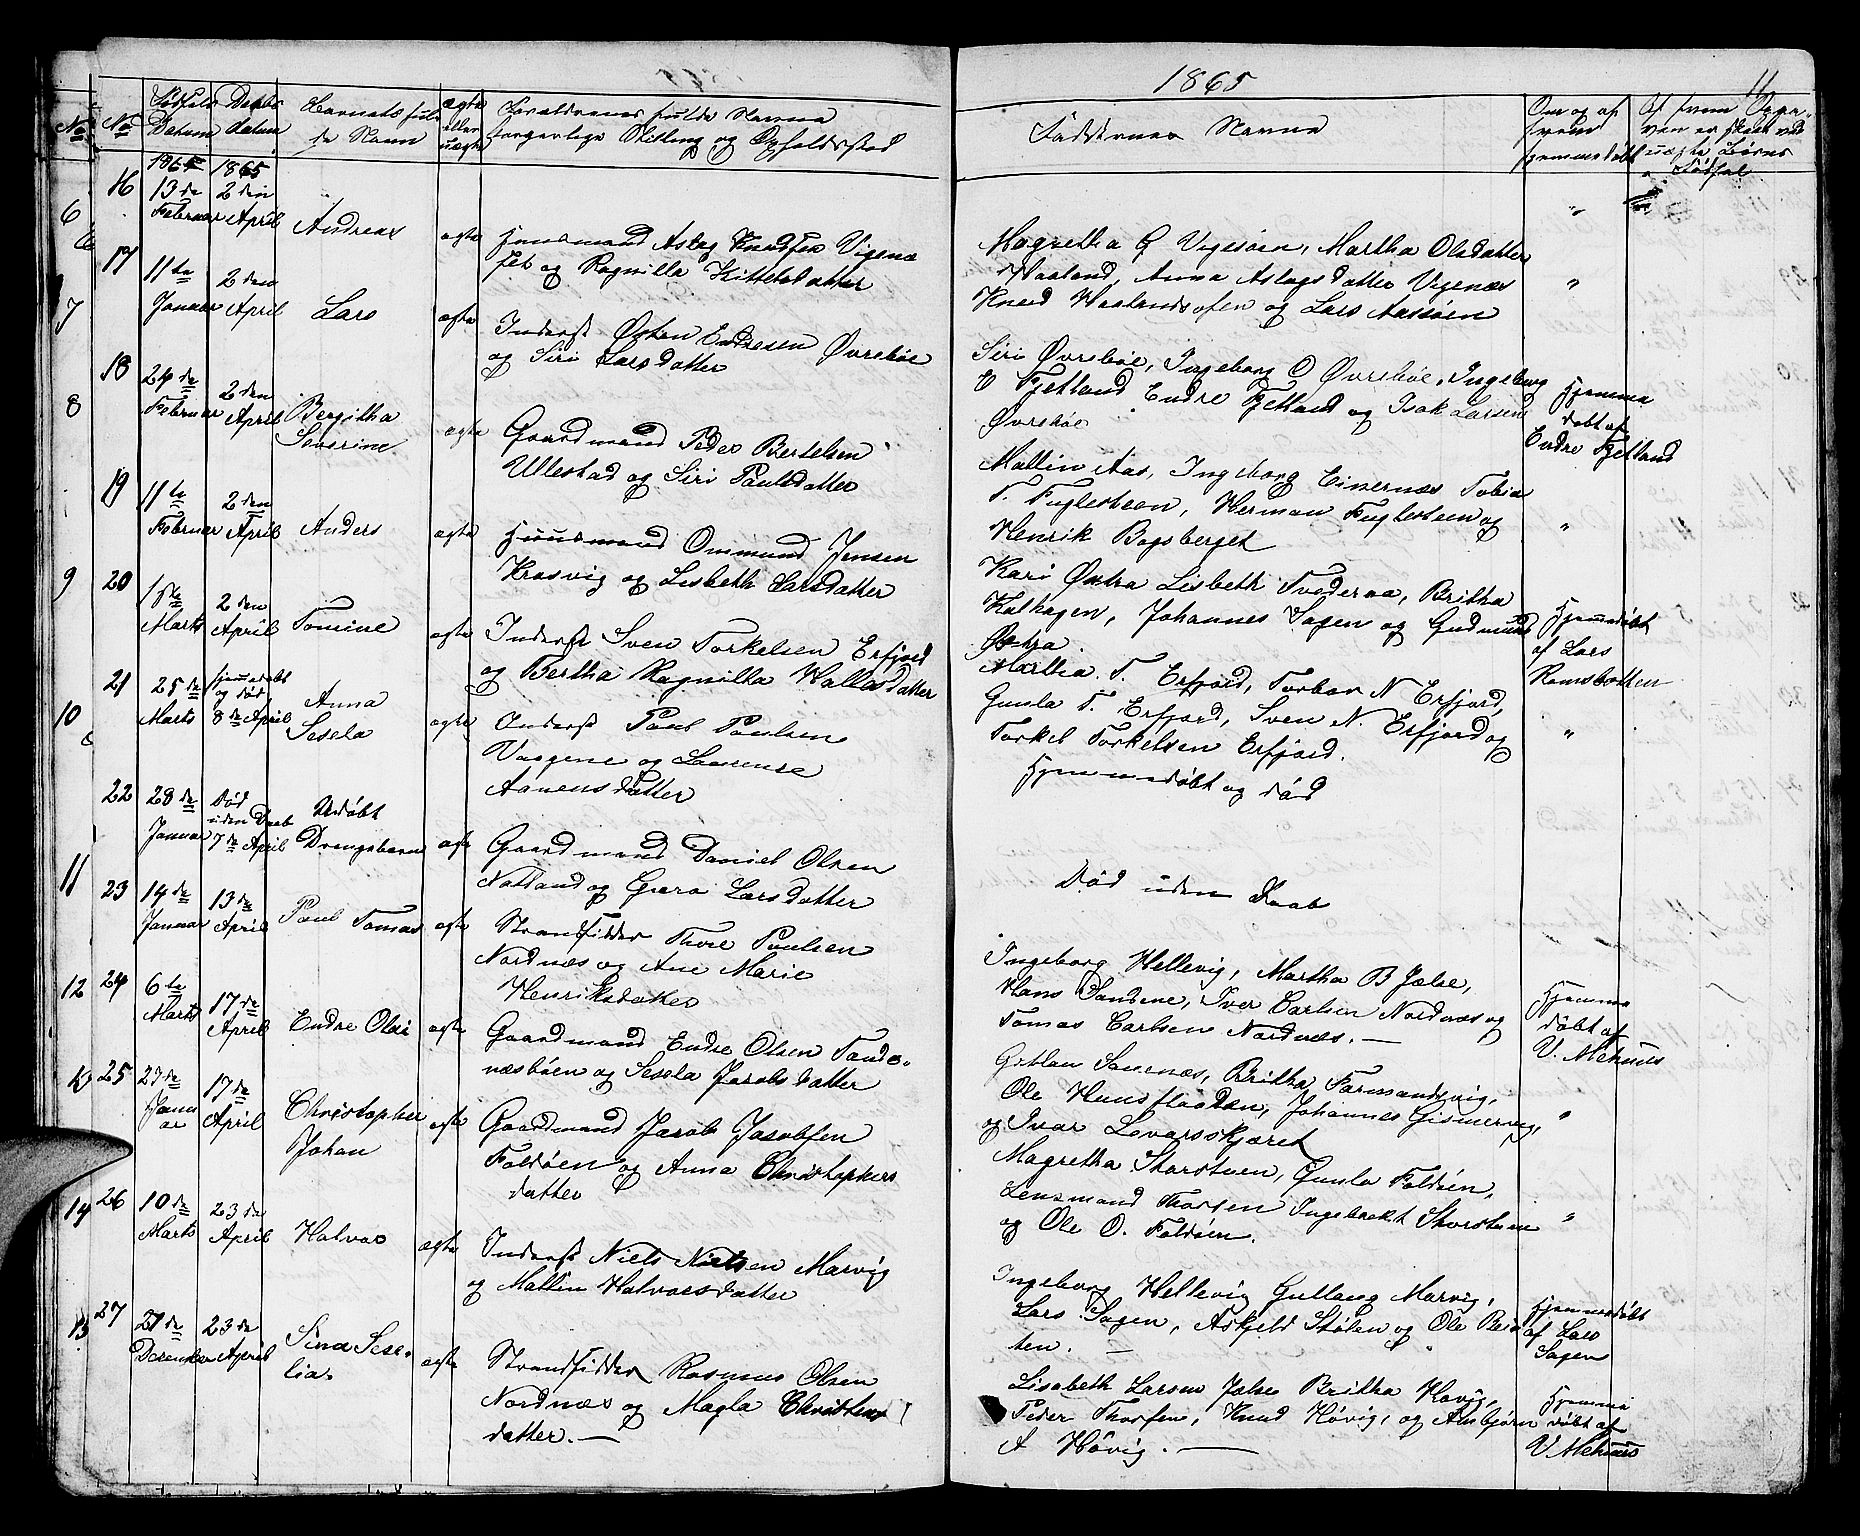 1865
11
No
No
Fødsels Datum
Daabs datum
Barnets fulde Navn
ægte eller uægte
Forældrenes fulde Navne
borgerlige Stilling og Opholdssted
Faddernes Navne
Om og af
hvem
hjemmedøbt
6
16
1865 1865
13de Februar
2den April
Andreas
ægte
Huusmand Aslag Knudsen Vigenæ
set og Ragnilla Kittelsdatter
Magretha G Vogesøen, Martha Olsdatter
Haaland, Anna Aslagsdatter Vigenæs
Knud Haalandsosen og Lars Aassøen
"
7
17
11te Januar
2den April
Lars
ægte
Inderst Østen Endresen Øvrebøe
og Siri Larsdatter
Siri Øvrebøe, Ingeborg O Øvrebøe, Ingeborg
E Fjetland Endre Fjetland og Isak Larsen
Øvrebøe
"
8
18
24de Februar
2den April
Bergitha
Severine
ægte
Gaardmand Peder Bertelsen
Ullestad og Siri Paulsdatter
Mallin Aas, Ingeborg Einernæs Tobia
T. Fuglesteen, Herman Fuglesteen og
Henrik Bogsberget
Hjemme
døbt af
Endre Fjetland
19
11te Februar
2den April
Anders
ægte
Huusmand Ommund Jensen
Krosvig og Lisbeth Larsdatter
Kari Østra Lisbeth Tvederaa, Britha
Kalhagen, Johannes Sagen og Gudmund
Østra.
"
9
20
1ste Marts
2den April
Tomine
ægte
Inderst Sven Torkelsen Erfjord
og Bertha Ragnilla Hallasdatter
Martha T. Erfjord, Torbor N Erfjord,
Gunla T. Erfjord, Sven N. Erfjord og
Torkel Torkelsen Erfjord.
Hjemmedøbt
af Lars
Ramsbotten
10
21
25de Marts
hjemmedøbt
og død
8de April
Anna
Sesela
ægte
Inderst Paul Paulsen
Vasgene og Laurense
Aanensdatter
Hjemmedøbt og død
"
22
28de Januar
Død
uden Daab
7de April
Udøbt
Drengebarn
ægte
Gaardmand Daniel Olsen
Natland og Guro Larsdatter
Død uden Daab
11
23
14de Januar
13de April
Paul Tomas
ægte
Strandsidder Thore Paulsen
Nordnæs og Ane Marie
Henriksdatter
Ingeborg Hellevig, Martha B Jelse,
Hans Sandene, Iver Carlsen Nordnæs og
Tomas Carlsen Nordnæs. —
Hjemme
døbt af
V. Mehuus
12
24
6te Marts
17de April
Endre Olai
ægte
Gaardmand Endre Olsen Tande-
næsbøen og Sesela Jacobsdatter
Britha Farmandsvig,
Ole Johannes
og Ivar Levarsskjæret
"
13
25
27de Janu
ar
17de April
Christopher
Johan
ægte
Gaardmand Jacob Jacobsen
Foldøen og Anna Christophers
datter
Magretha Storstuen, Gunla Foldøen,
Lensmand Thorsen Ingebrekt Storstuen
og Ole O. Foldøen.
"
14
26
10de Marts
23de April
Halvor
ægte
Inderst Niels Nielsen Marvig
og Mallin Halvorsdatter
Ingeborg Hellevig Gullaug Marvig,
Lars Sagen, Askjeld Stølen og Ole Brei
ten. —
Hjemmedøbt
af Lars
Sagen
15
27
27de Desember
23de April
Sina Sese-
lia
ægte
Strandsidder Rasmus Olsen
Nordnæs og Magla Christens
datter. —
Lisabeth Larsen Jelse Britha Høvig,
Peder Thorsen, Knud Høvig, og Asbjørn
A Høvig. —
Hjemme
døbt af
V Mehuus